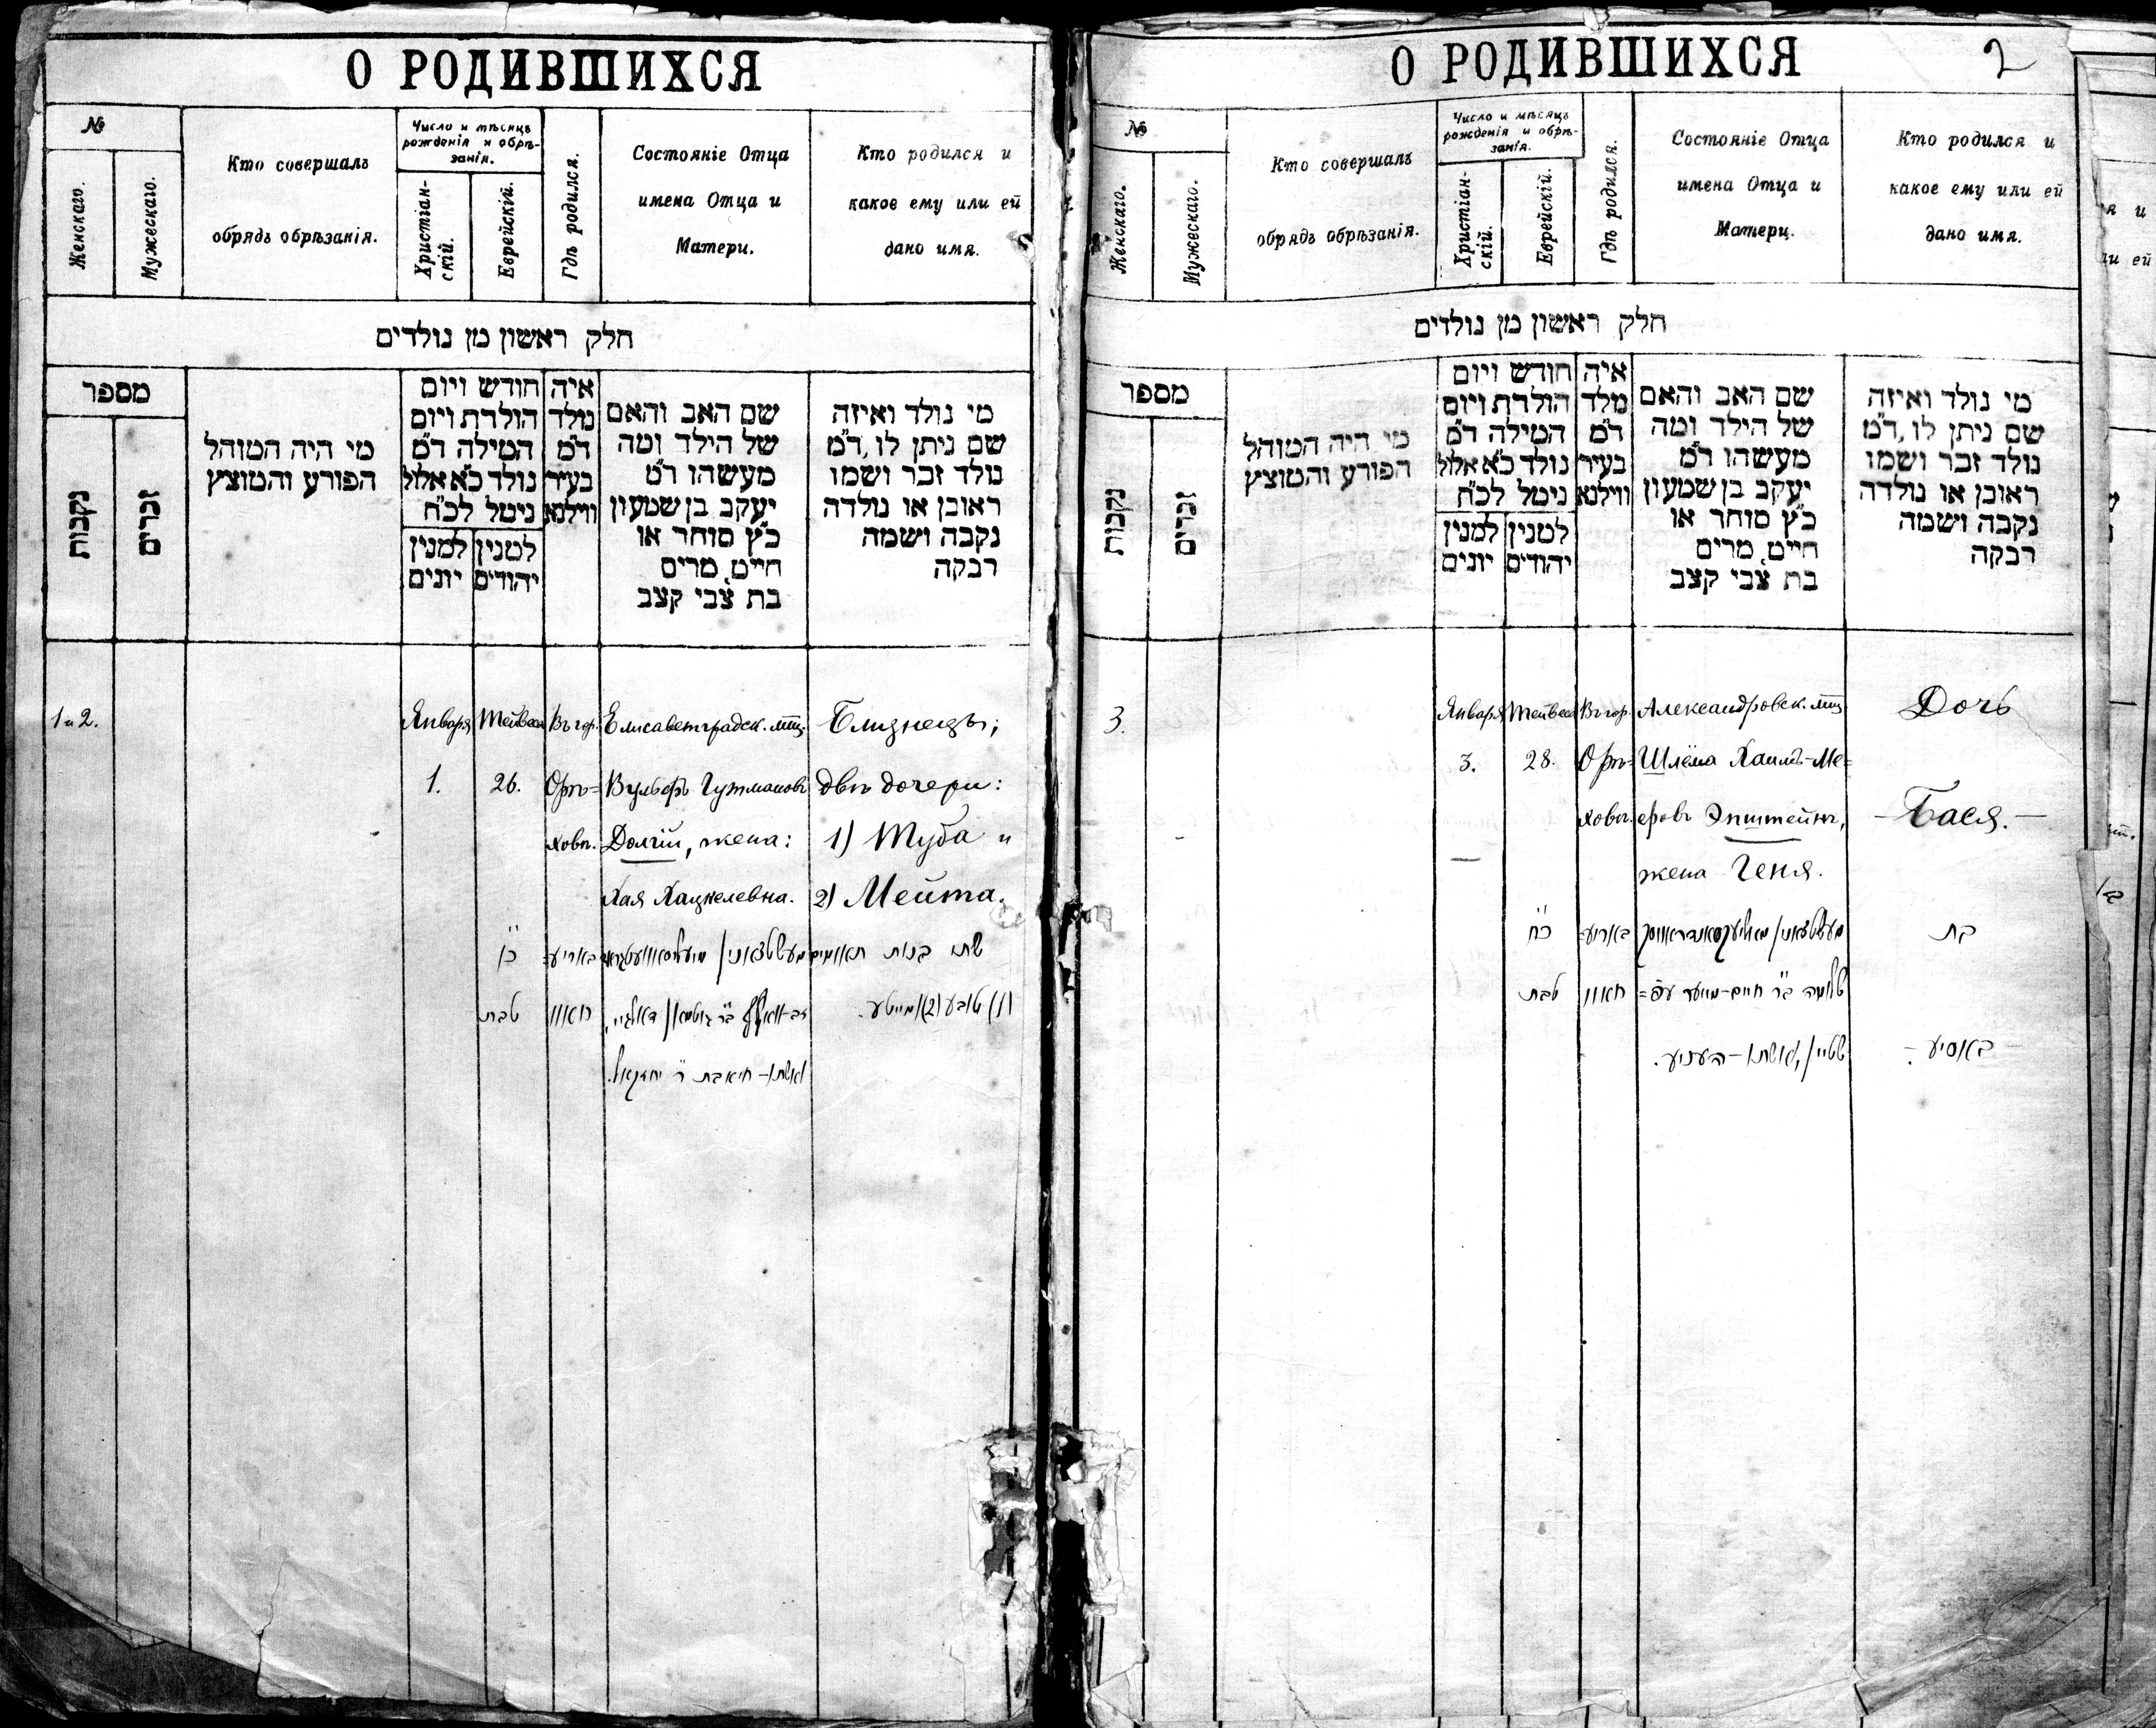 О РОДИВШИХСЯ
№
Женскаго.
Мужескаго.
Кто совершалъ
обрядъ обрѣзанія.
Число и мѣсяцъ
рожденія и обрѣ-
занія.
Христіан-
скій.
Еврейскій.
Гдѣ родился.
Состояніе Отца
имена Отца и
Матери.
Кто родился и
какое ему или ей
дано имя.
חלק ראשון מן נולדים
מספר
נקבות
זכרים
מי היה המוהל
הפורע והמוצץ
חודש ויום
הולדת ויום
המילה ד״מ
נולד כ״א אלול
ניטל לכ״ח
למנין יהודים
למנין יונים
איה
נולד
ד״מ
בעיר
ווילנא
שם האב והאם
של הילד ומה
מעשהו ד״מ
יעקב בן שמעון
כ״ץ סוחר או
חייט, מרים
בת צבי קצב
מי נולד ואיזה
שם ניתן לו, ד״מ
נולד זכר ושמו
ראובן או נולדה
נקבה ושמה
רבקה
1 и 2.
Января
1.
Тейвеса
26.
Въ гор.
Орѣ=
ховѣ.
Елисаветградск. мѣщ.
Вульфъ Гутмановъ
Долгій, жена:
Хая Хацкелевна.
Близнецы;
двѣ дочери:
1) Туба и
2) Мейта.
כ״ו
טבת
באריע=
חאוו
ואשתו - חיה בת ר׳ יחזקאל.
שתי בנות תאומים
1) טובע 2) מייטע.
О РОДИВШИХСЯ
2
№
Женскаго.
Мужескаго.
Кто совершалъ
обрядъ обрѣзанія.
Число и мѣсяцъ
рожденія и обрѣ-
занія.
Христіан-
скій.
Еврейскій.
Гдѣ родился.
Состояніе Отца
имена Отца и
Матери.
Кто родился и
какое ему или ей
дано имя.
חלק ראשון מן נולדים
מספר
נקבות
זכרים
מי היה המוהל
הפורע והמוצץ
חודש ויום
הולדת ויום
המילה ד״מ
נולד כ״א אלול
ניטל לכ״ח
למנין יהודים
למנין יונים
איה
נולד
ד״מ
בעיר
ווילנא
שם האב והאם
של הילד ומה
מעשהו ד״מ
יעקב בן שמעון
כ״ץ סוחר או
חייט, מרים
בת צבי קצב
מי נולד ואיזה
שם ניתן לו, ד״מ
נולד זכר ושמו
ראובן או נולדה
נקבה ושמה
רבקה
3.
Января
3.
Тейвеса
28.
Въ гор.
Орѣ=
ховѣ.
Александровск. мѣщ.
Шлёма Хаимъ-Ме=
еровъ Эпштейнъ,
жена Геня.
Дочь
- Бася. -
כ״ח
טבת
באריע=
חאוו
שלמה ב״ר חיים-מייער עפ=
שטיין, ואשתו - העניע.
בת
- באסיע -